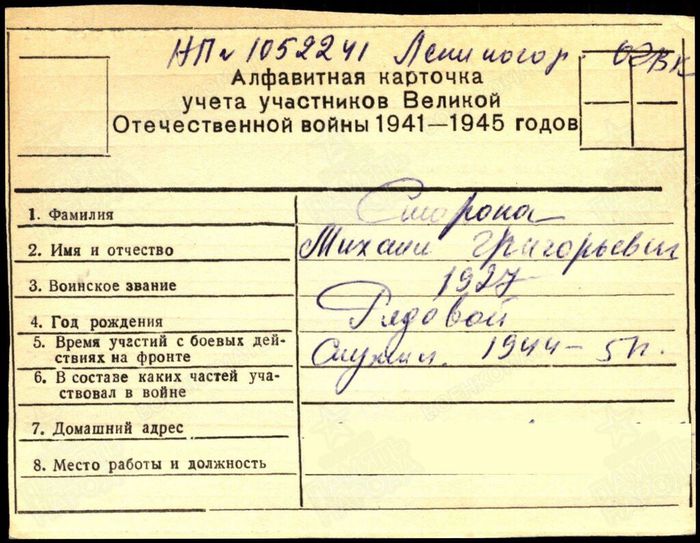 НПи 1052241 Лениногор. ОГВК
Алфавитная карточка
учета участников Великой
Отечественной войны 1941—1945 годов
1. Фамилия Сторона
2. Имя и отчество Михаил Григорьевич
3. Воинское звание 1927
4. Год рождения Рядовой
5. Время участий с боевых дей-
ствиях на фронте Служил. 1944-51г.
6. В составе каких частей уча-
ствовал в войне
7. Домашний адрес
8. Место работы и должность